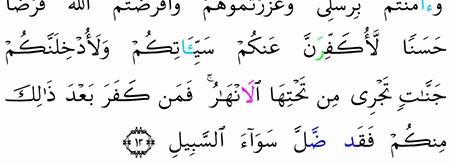 وَءَامَنتُم بِرُسُلِى وَعَزَّرْتُمُوهُمْ وَأَقْرَضْتُمُ ٱللَّهَ قَرْضًا
حَسَنًا لَّأُكَفِّرَنَّ عَنكُمْ سَيِّـَٔاتِكُمْ وَلَأُدْخِلَنَّكُمْ
جَنَّـٰتٍ تَجْرِى مِن تَحْتِهَا ٱلْأَنْهَـٰرُ ۚ فَمَن كَفَرَ بَعْدَ ذَٰلِكَ
مِنكُمْ فَقَدْ ضَلَّ سَوَآءَ ٱلسَّبِيلِ ﴿١٢﴾